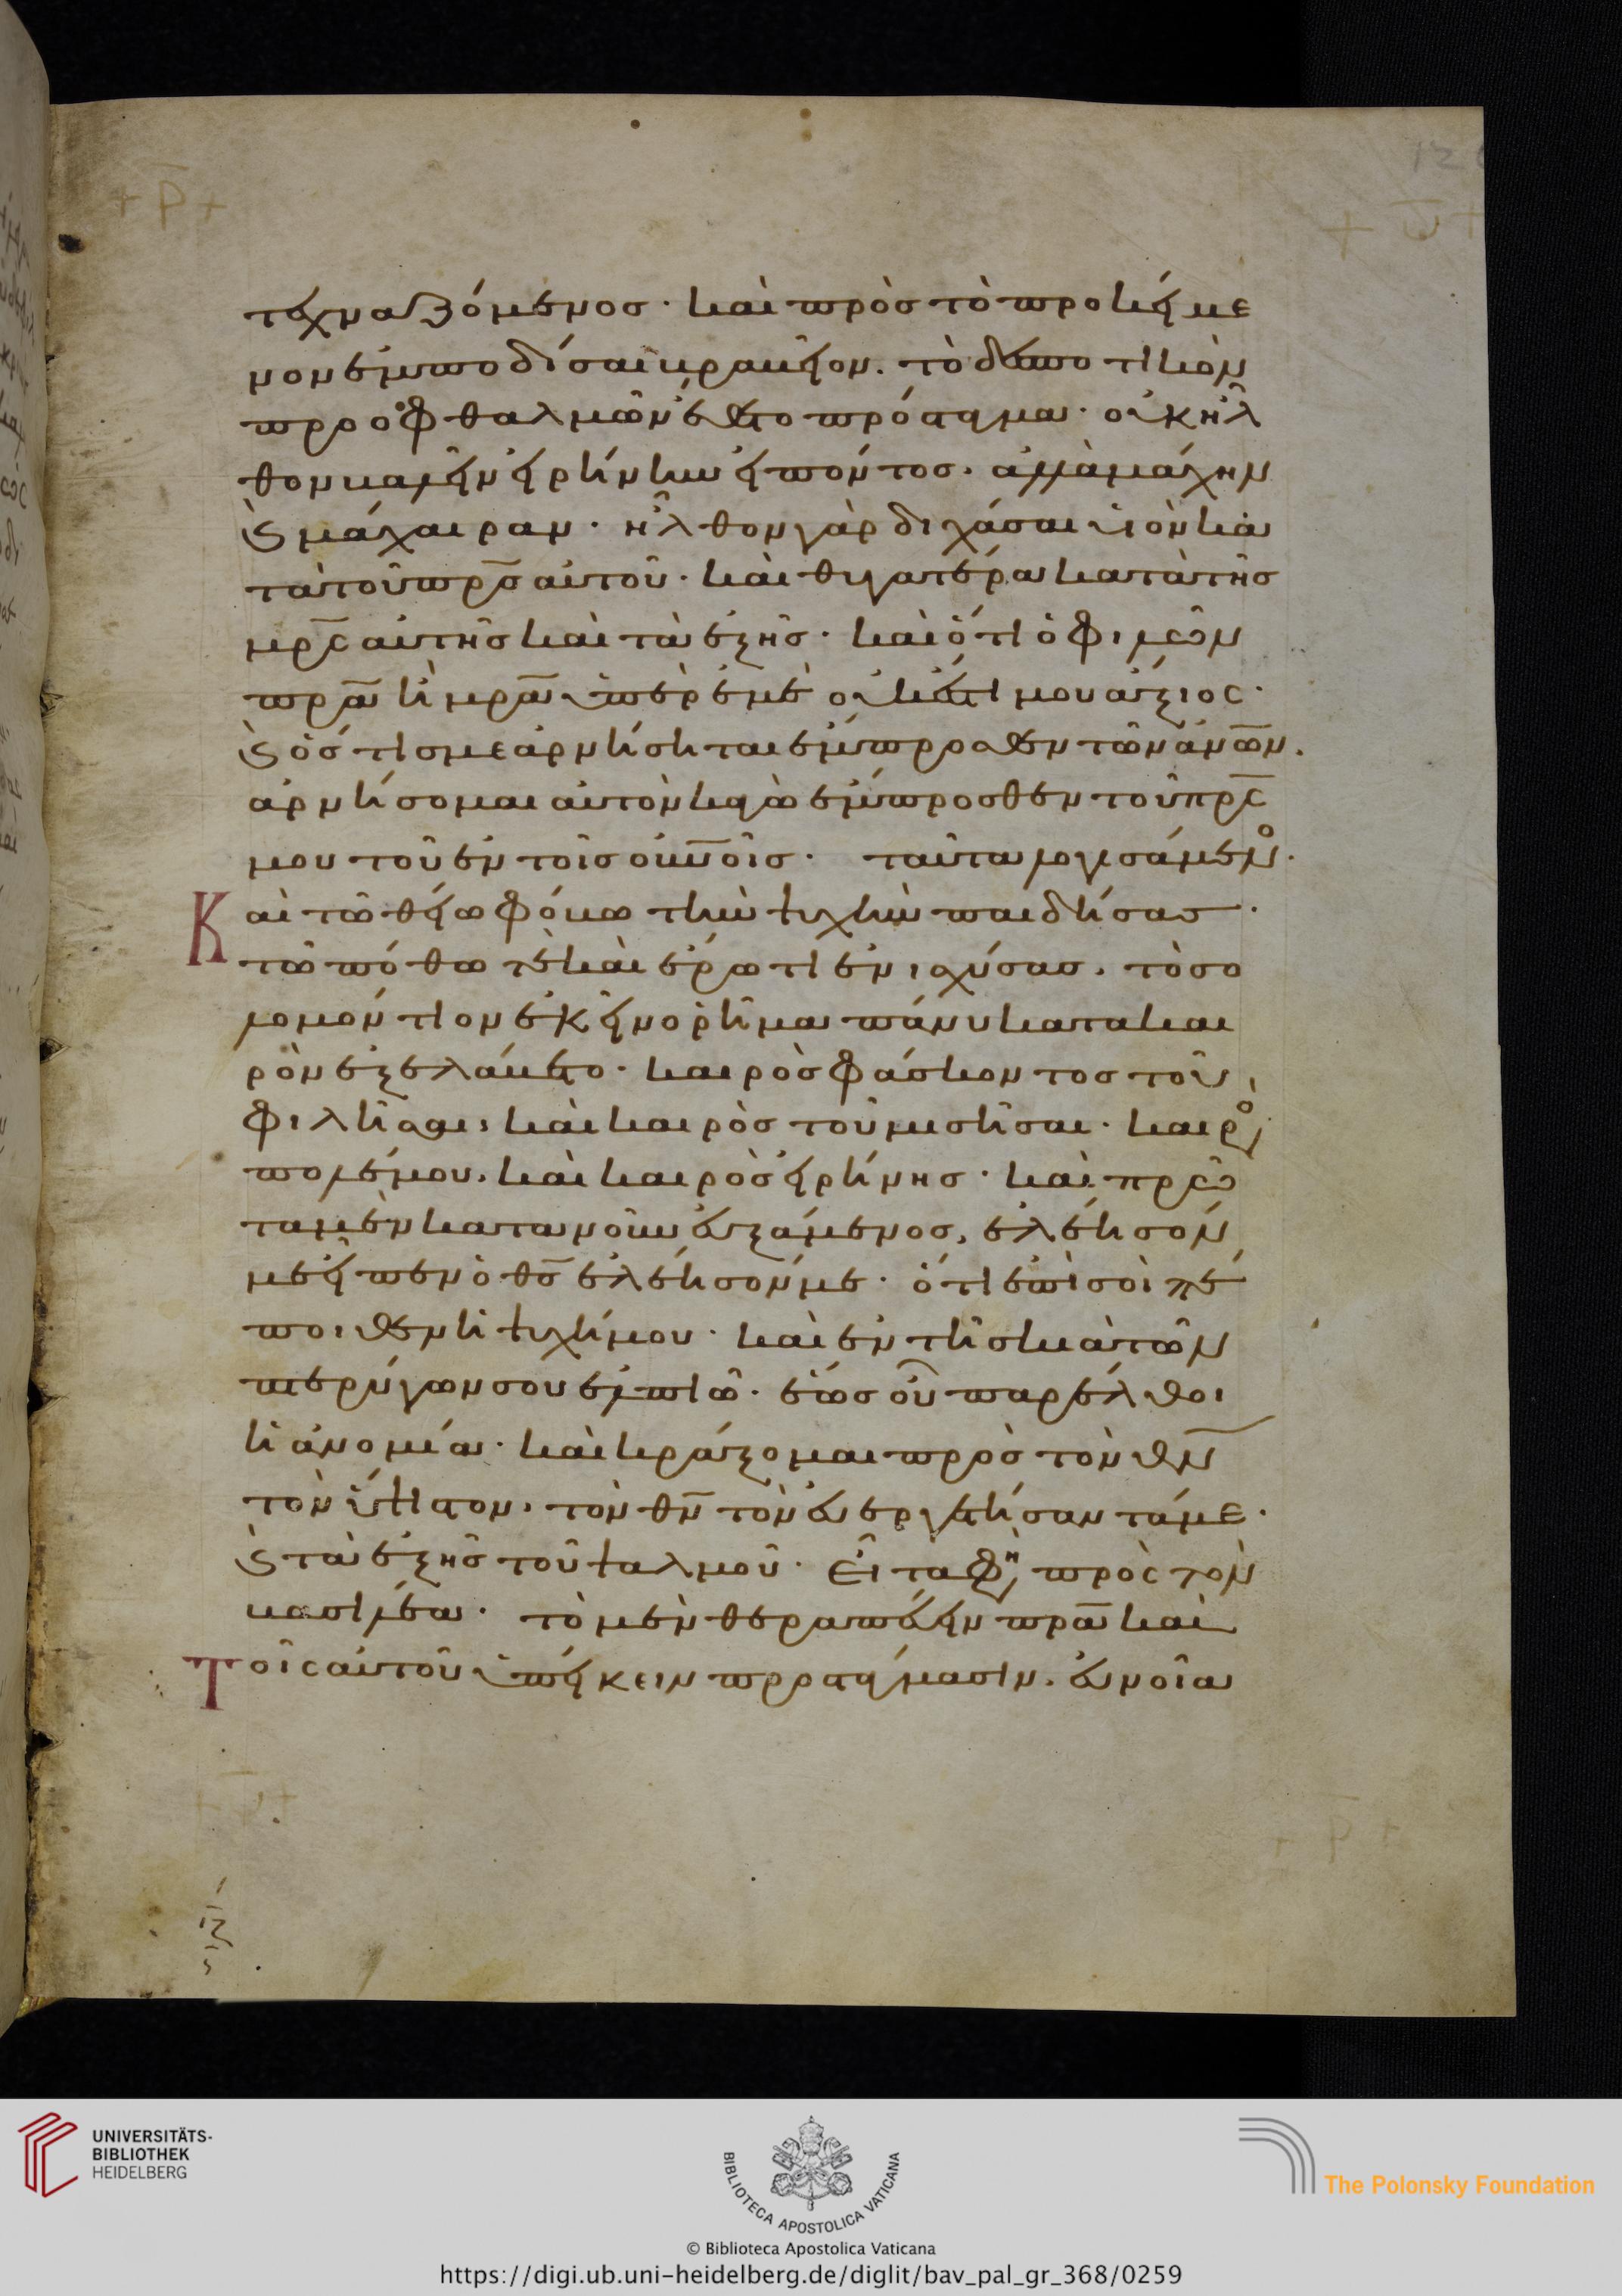 τεχναζόμενος· καὶ πρὸς τὸ προκείμε
νον ἐμποδίσαι κρακεῖον. τὸ δεσποτικὸν
πρὸ ὀφθαλμῶν ἔθετο πρόσταγμα· οὐκ ἦλ
θον καλεῖν εἰρήνην εἰπόντος· ἀλλὰ μάχην
καὶ μάχαιραν· ἦλθον γὰρ διχάσαι υἱὸν κα
τὰ τοῦ πρς αὐτοῦ· καὶ θυγατέρα κατὰ τῆς
μρς αὐτῆς καὶ τὰ ἑξῆς· καὶ ὅτι ὁ φιλῶν
πρα ἢ μρα ὑπὲρ ἐμὲ οὐκ ἔστι μου ἄξιος·
καὶ ὅστις με ἀρνήσηται ἔμπροσθεν τῶν ανων.
ἀρνήσομαι αὐτὸν κἀγὼ ἔμπροσθεν τοῦ πρς
μου τοῦ ἐν τοῖς οὐνοῖς· ταῦτα λογισάμενο
Καὶ τῶ θείω φόβω τὴν ψυχὴν παιδήσας·
τῶ πόθω τὲ καὶ ἔρωτι ἐνισχύσας· τὸ σο
λομόντιον ἐκεῖνο ῥῆμα πάνυ κατὰ και
ρὸν ἐξελάβετο· καιρὸς φάσκοντος τοῦ
φιλῆσαι· καὶ καιρὸς τοῦ μισῆσαι· καιρὸ
πολέμου· καὶ καιρὸς εἰρήνης· καὶ πρῶ
τα μὲν κατὰ νοῦν εὐξάμενος, ἐλέησόν
με εἶπεν ὁ θς ἐλέησόν με· ὅτι ἐπὶ σοὶ πέ
ποιθεν ἡ ψυχή μου· καὶ ἐν τῆ σκιᾶ τῶν
πτερύγων σου ἐλπιῶ· ἕως οὗ παρέλθοι
ἡ ἀνομία· καὶ κράξομαι πρὸς τὸν θν
τὸν ὕψιστον· τὸν θν τὸν εὐεργετήσαντά με·
καὶ τὰ ἑξῆς τοῦ ψαλμοῦ· Εἶτα φη πρὸς τὸν
βασιλέα· τὸ μὲν θεραπεύειν πρα καὶ
Τοῖς αὐτοῦ ὑπείκειν προστάγμασιν. εὐνοία
UNIVERSITÄTS-
BIBLIOTHEK
HEIDELBERG
BIBLIOTECA APOSTOLICA VATICANA
The Polonsky Foundation
© Biblioteca Apostolica Vaticana
https://digi.ub.uni-heidelberg.de/diglit/bav_pal_gr_368/0259